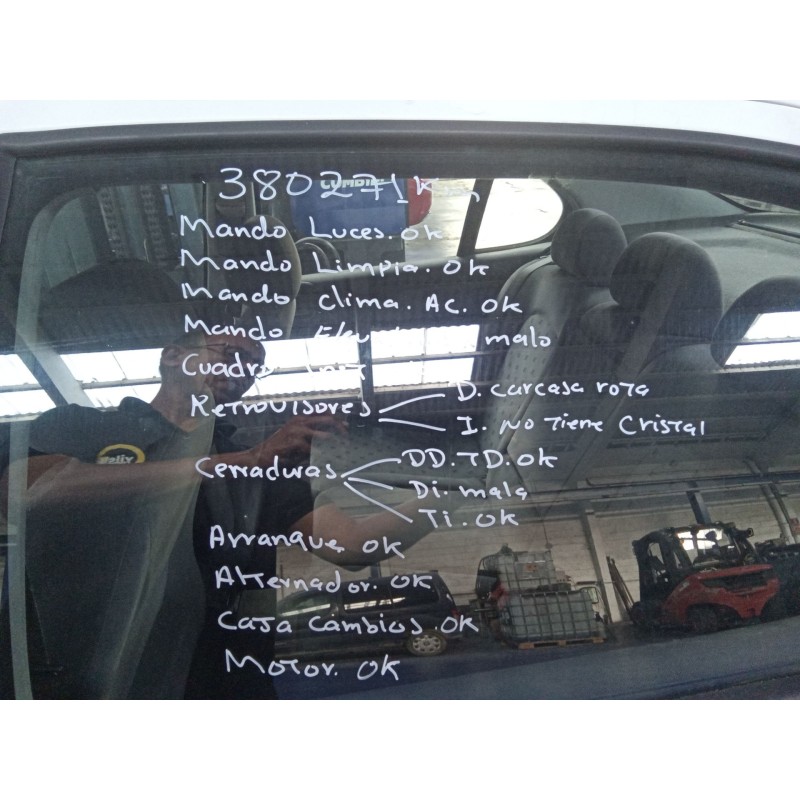 380271 Km
Mando Luces. ok
Mando Limpia. ok
Mando clima. AC. ok
Mando malo
Cuadro
Retrovisores D. carcasa rota
I. No tiene Cristal
Cerraduras DD. TD. ok
Di. mala
Ti. ok
Arranque ok
Alternador. ok
Caja cambios. ok
Motor. ok